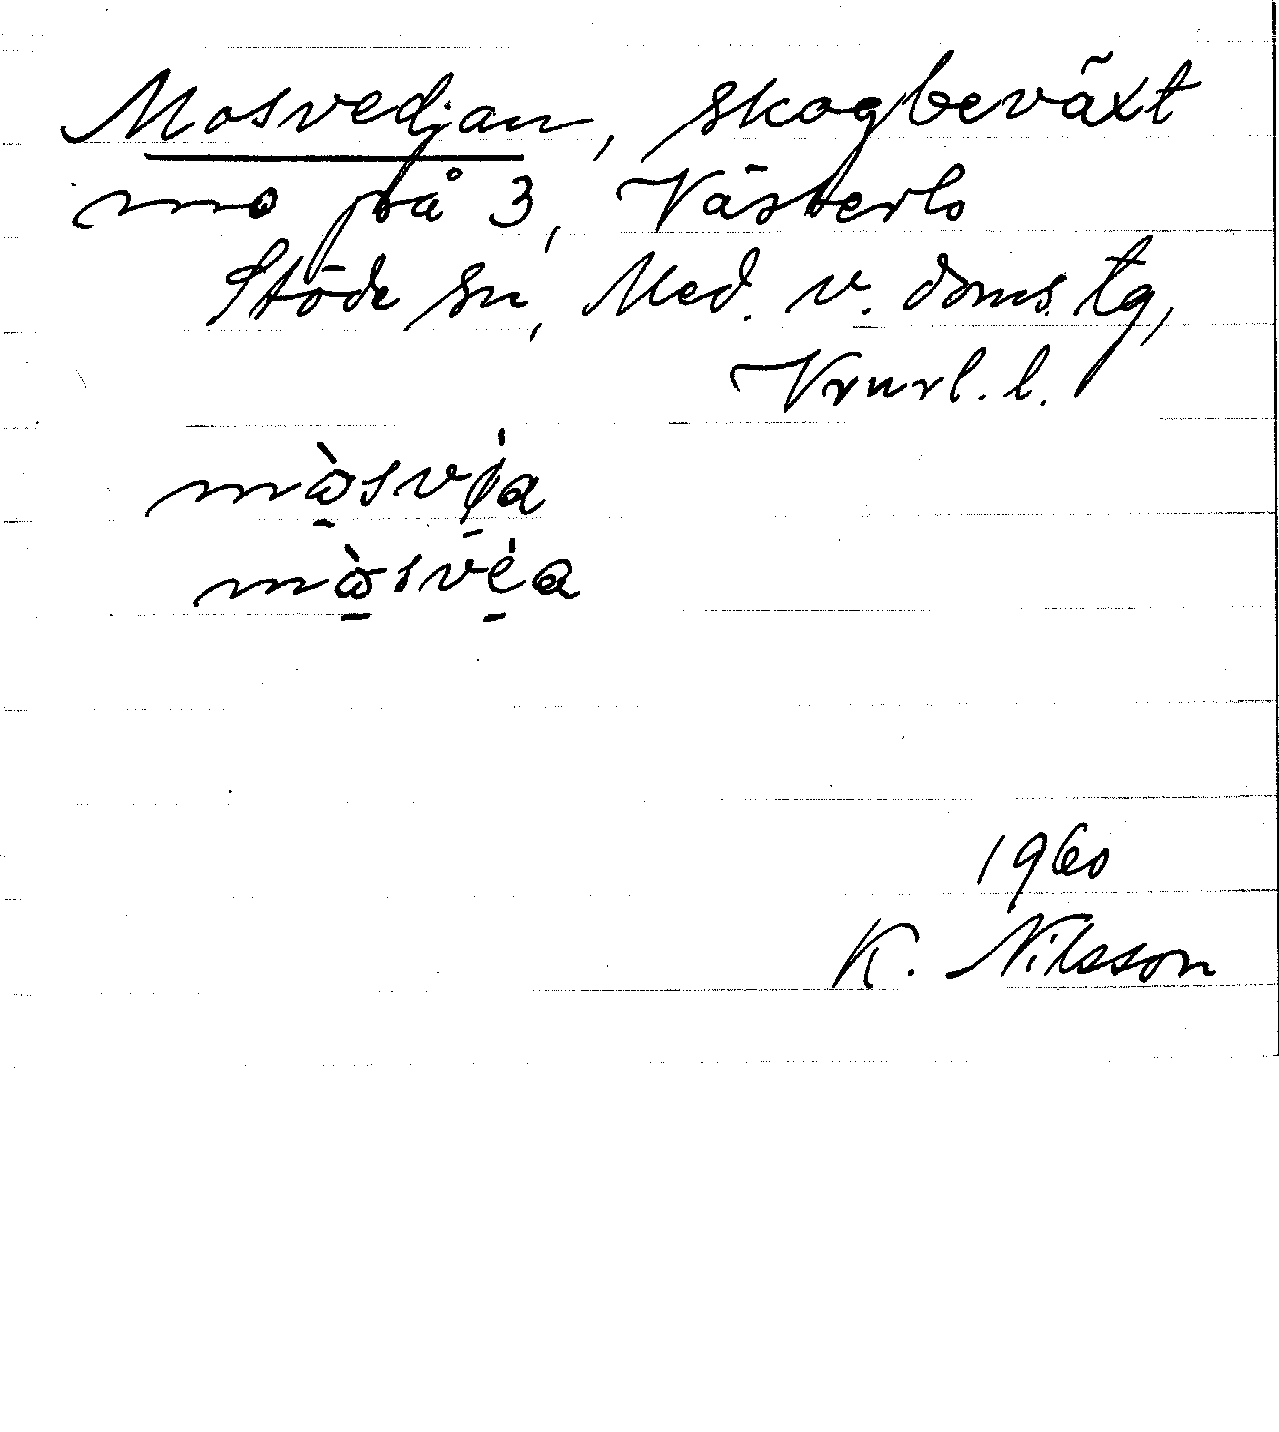 Mosvedjan, skogbeväxt
mo på 3, Västerlo
Stöde sn, Med. v. doms. tg,
Vrnrl. l.
mòsvia
mòsvéa
1960
K. Nilsson